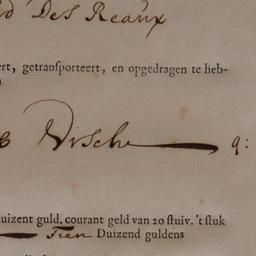 Des Reaux
ert, getransporteert, en opgedragen te heb-
Vische 9:
uizent guld. courant geld van 20 stuiv. 't stuk
Tien Duizend guldens